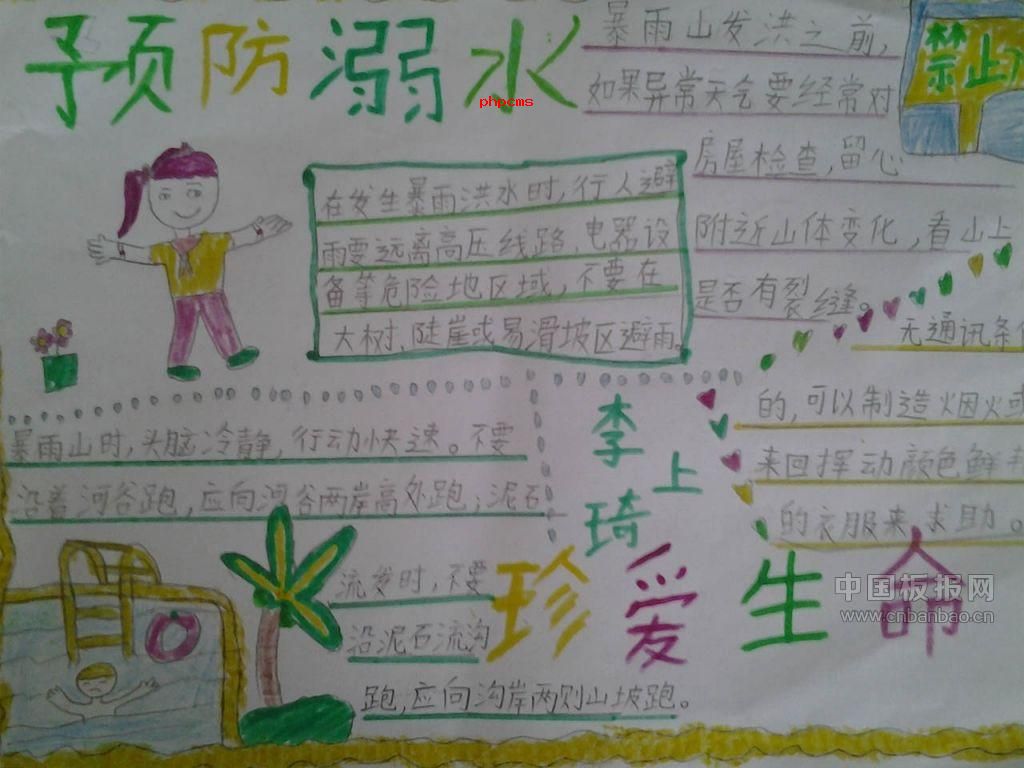 预防溺水
phpcms
暴雨山发洪之前,
如果异常天气要经常对
房屋检查,留心
附近山体变化,看山上
是否有裂缝。
禁止
在发生暴雨洪水时,行人避
雨要远离高压线路、电器设
备等危险地区域,不要在
大树、陡崖或易滑坡区避雨。
无通讯条
的,可以制造烟火或
来回挥动颜色鲜
的衣服来求助。
暴雨山时,头脑冷静,行动快速。不要
沿着河谷跑,应向河谷两岸高处跑;泥石
流发时,不要
沿泥石流沟
跑,应向沟岸两则山坡跑。
李上琦
珍爱生命
中国板报网
www.cnbanbao.cn